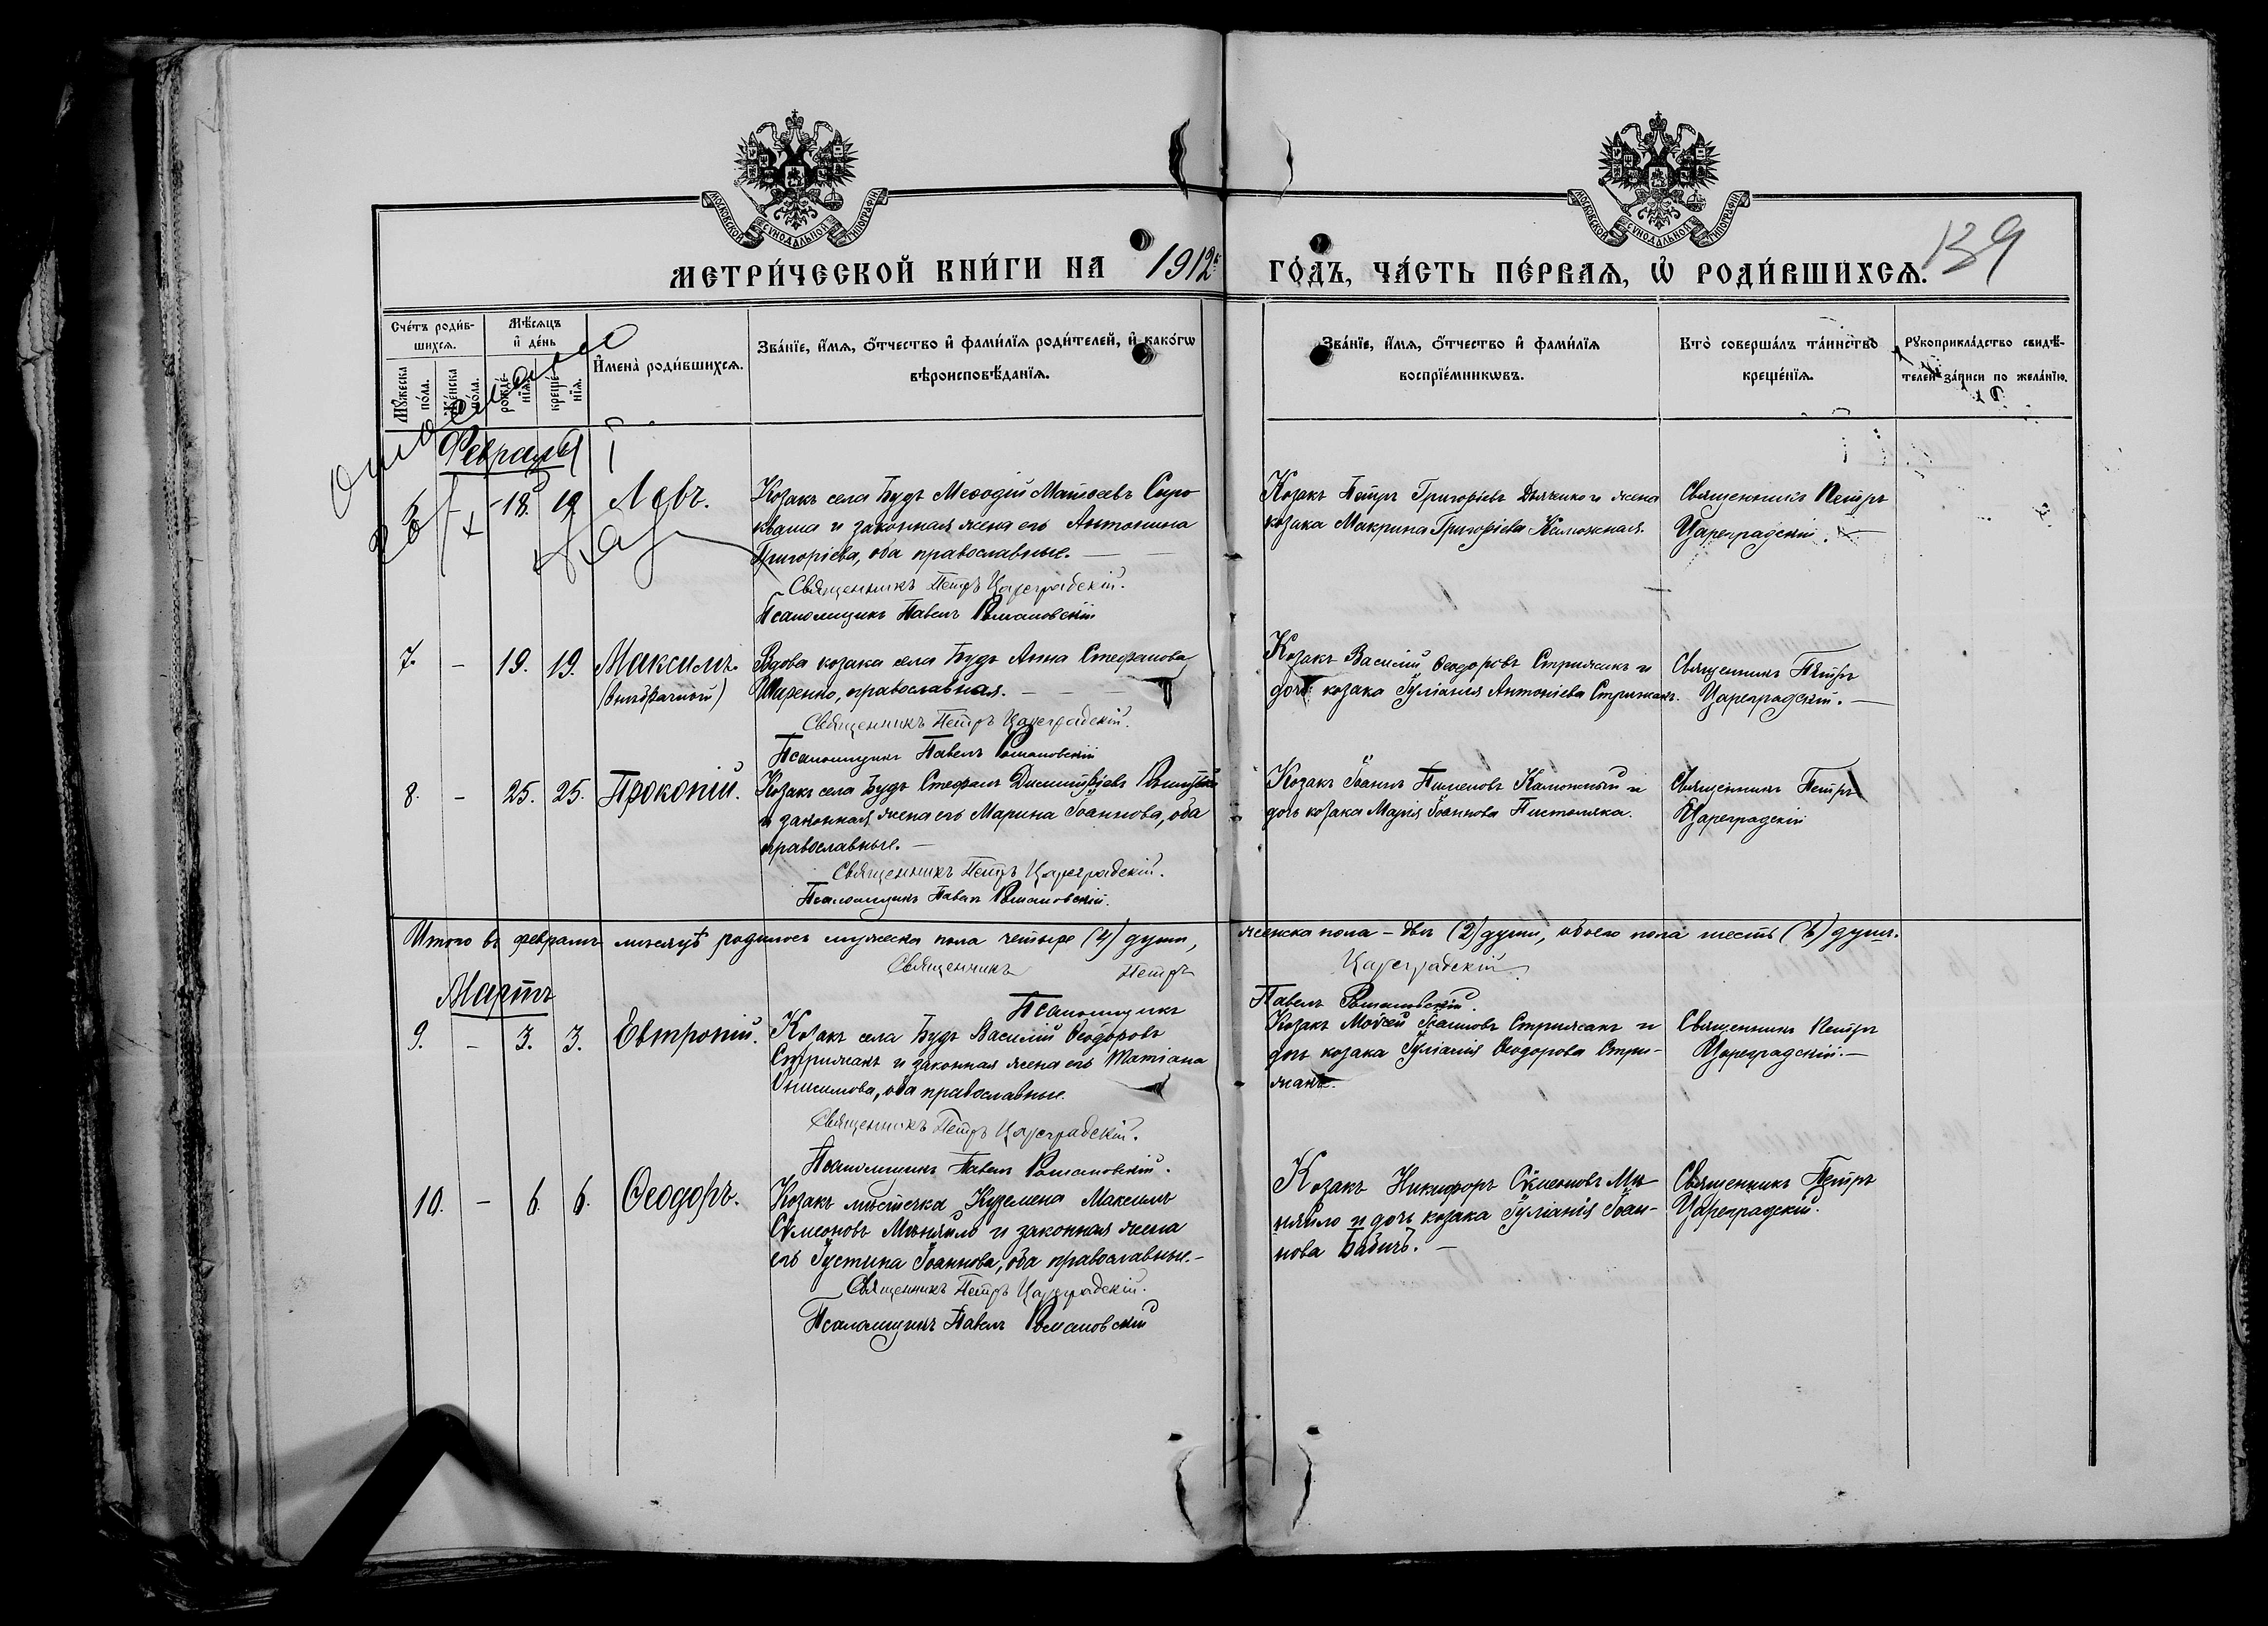 МОСКОВСКОЙ СУНОДАЛЬНОЙ ТИПОГРАФІИ
МОСКОВСКОЙ СУНОДАЛЬНОЙ ТИПОГРАФІИ
МЕТРИ́ЧЕСКОЙ КНИ́ГИ НА 1912й ГО́ДЪ, ЧА́СТЬ ПЕ́РВАѦ, Ѡ҆ РОДИ́ВШИХСѦ.
139
Сче́тъ роди́в-
шихсѧ.
Мѣ́сѧцъ
и҆ де́нь
Мꙋ́жеска
по́ла.
Же́нска
по́ла.
рожде́-
нїѧ.
креще́-
нїѧ.
И҆мена̀ роди́вшихсѧ.
Зва́нїе, и҆́мѧ, ѻ҆́тчество и҆ фами́лїѧ роди́телей, и҆ како́гѡ
вѣроисповѣ́данїѧ.
Зва́нїе, и҆́мѧ, ѻ҆́тчество и҆ фами́лїѧ
воспрїе́мникѡвъ.
Кто̀ соверша́лъ та́инство
креще́нїѧ.
Рꙋкоприкла́дство свидѣ́-
телей за́писи по жела́нїю.
Февраля
6 - 18. 19 Левъ.
Козакъ села Будъ Меѳодій Матѳеевъ Сыро
кваша и законная жена его Антонина
Григоріева, оба православные. —
Священникъ Петръ Цареградскій.
Псаломщикъ Павелъ Романовскій
Козакъ Петръ Григорьевъ Дьяченко и жена
козака Макрина Григорьева Калюжная.
Священникъ Петръ
Цареградскій. —
7. - 19. 19. Максимъ.
(внѣбрачный)
Вдова козака села Будъ Анна Стефанова
Шаренко, православная. —
Священникъ Петръ Цареградскій.
Псаломщикъ Павелъ Романовскій
Козакъ Василій Ѳеодоровъ Стрижакъ и
дочь козака Іуліанія Антоніева Стрижакъ.
Священникъ Петръ
Цареградскій. —
8. - 25. 25. Прокопій.
Козакъ села Будъ Стефанъ Димитріевъ
и законная жена его Марина Іоаннова, оба
православные. —
Священникъ Петръ Цареградскій.
Псаломщикъ Павелъ Романовскій.
Козакъ Іоаннъ Пименовъ Калюжный и
дочь козака Марія Іоаннова Пистоляка.
Священникъ Петръ
Цареградскій
Итого въ февралѣ мѣсяцѣ родилось мужеска пола четыре (4) души, женска пола – двѣ (2) души, обоего пола шесть (6) душъ.
Священникъ Петръ Цареградскій.
Псаломщикъ Павелъ Романовскій.
Мартъ
9. - 3. 3. Евтропій.
Козакъ села Будъ Василій Ѳеодоровъ
Стрижакъ и законная жена его Татіана
Онисимова, оба православные.
Священникъ Петръ Цареградскій.
Псаломщикъ Павелъ Романовскій.
Козакъ Моѵсей Іоанновъ Стрижакъ и
дочь козака Іуліанія Ѳеодорова Стри-
жакъ.
Священникъ Петръ
Цареградскій. —
10. - 6. 6. Ѳеодоръ.
Козакъ мѣстечка Куземена Максимъ
Сѵмеоновъ Мѣняйло и законная жена
его Іустина Іоаннова, оба православные. -
Священникъ Петръ Цареградскій.
Псаломщикъ Павелъ Романовскій
Козакъ Никифоръ Сѵмеоновъ Мѣ-
няйло и дочь козака Іуліанія Іоан-
нова Бабичъ. —
Священникъ Петръ
Цареградскій.